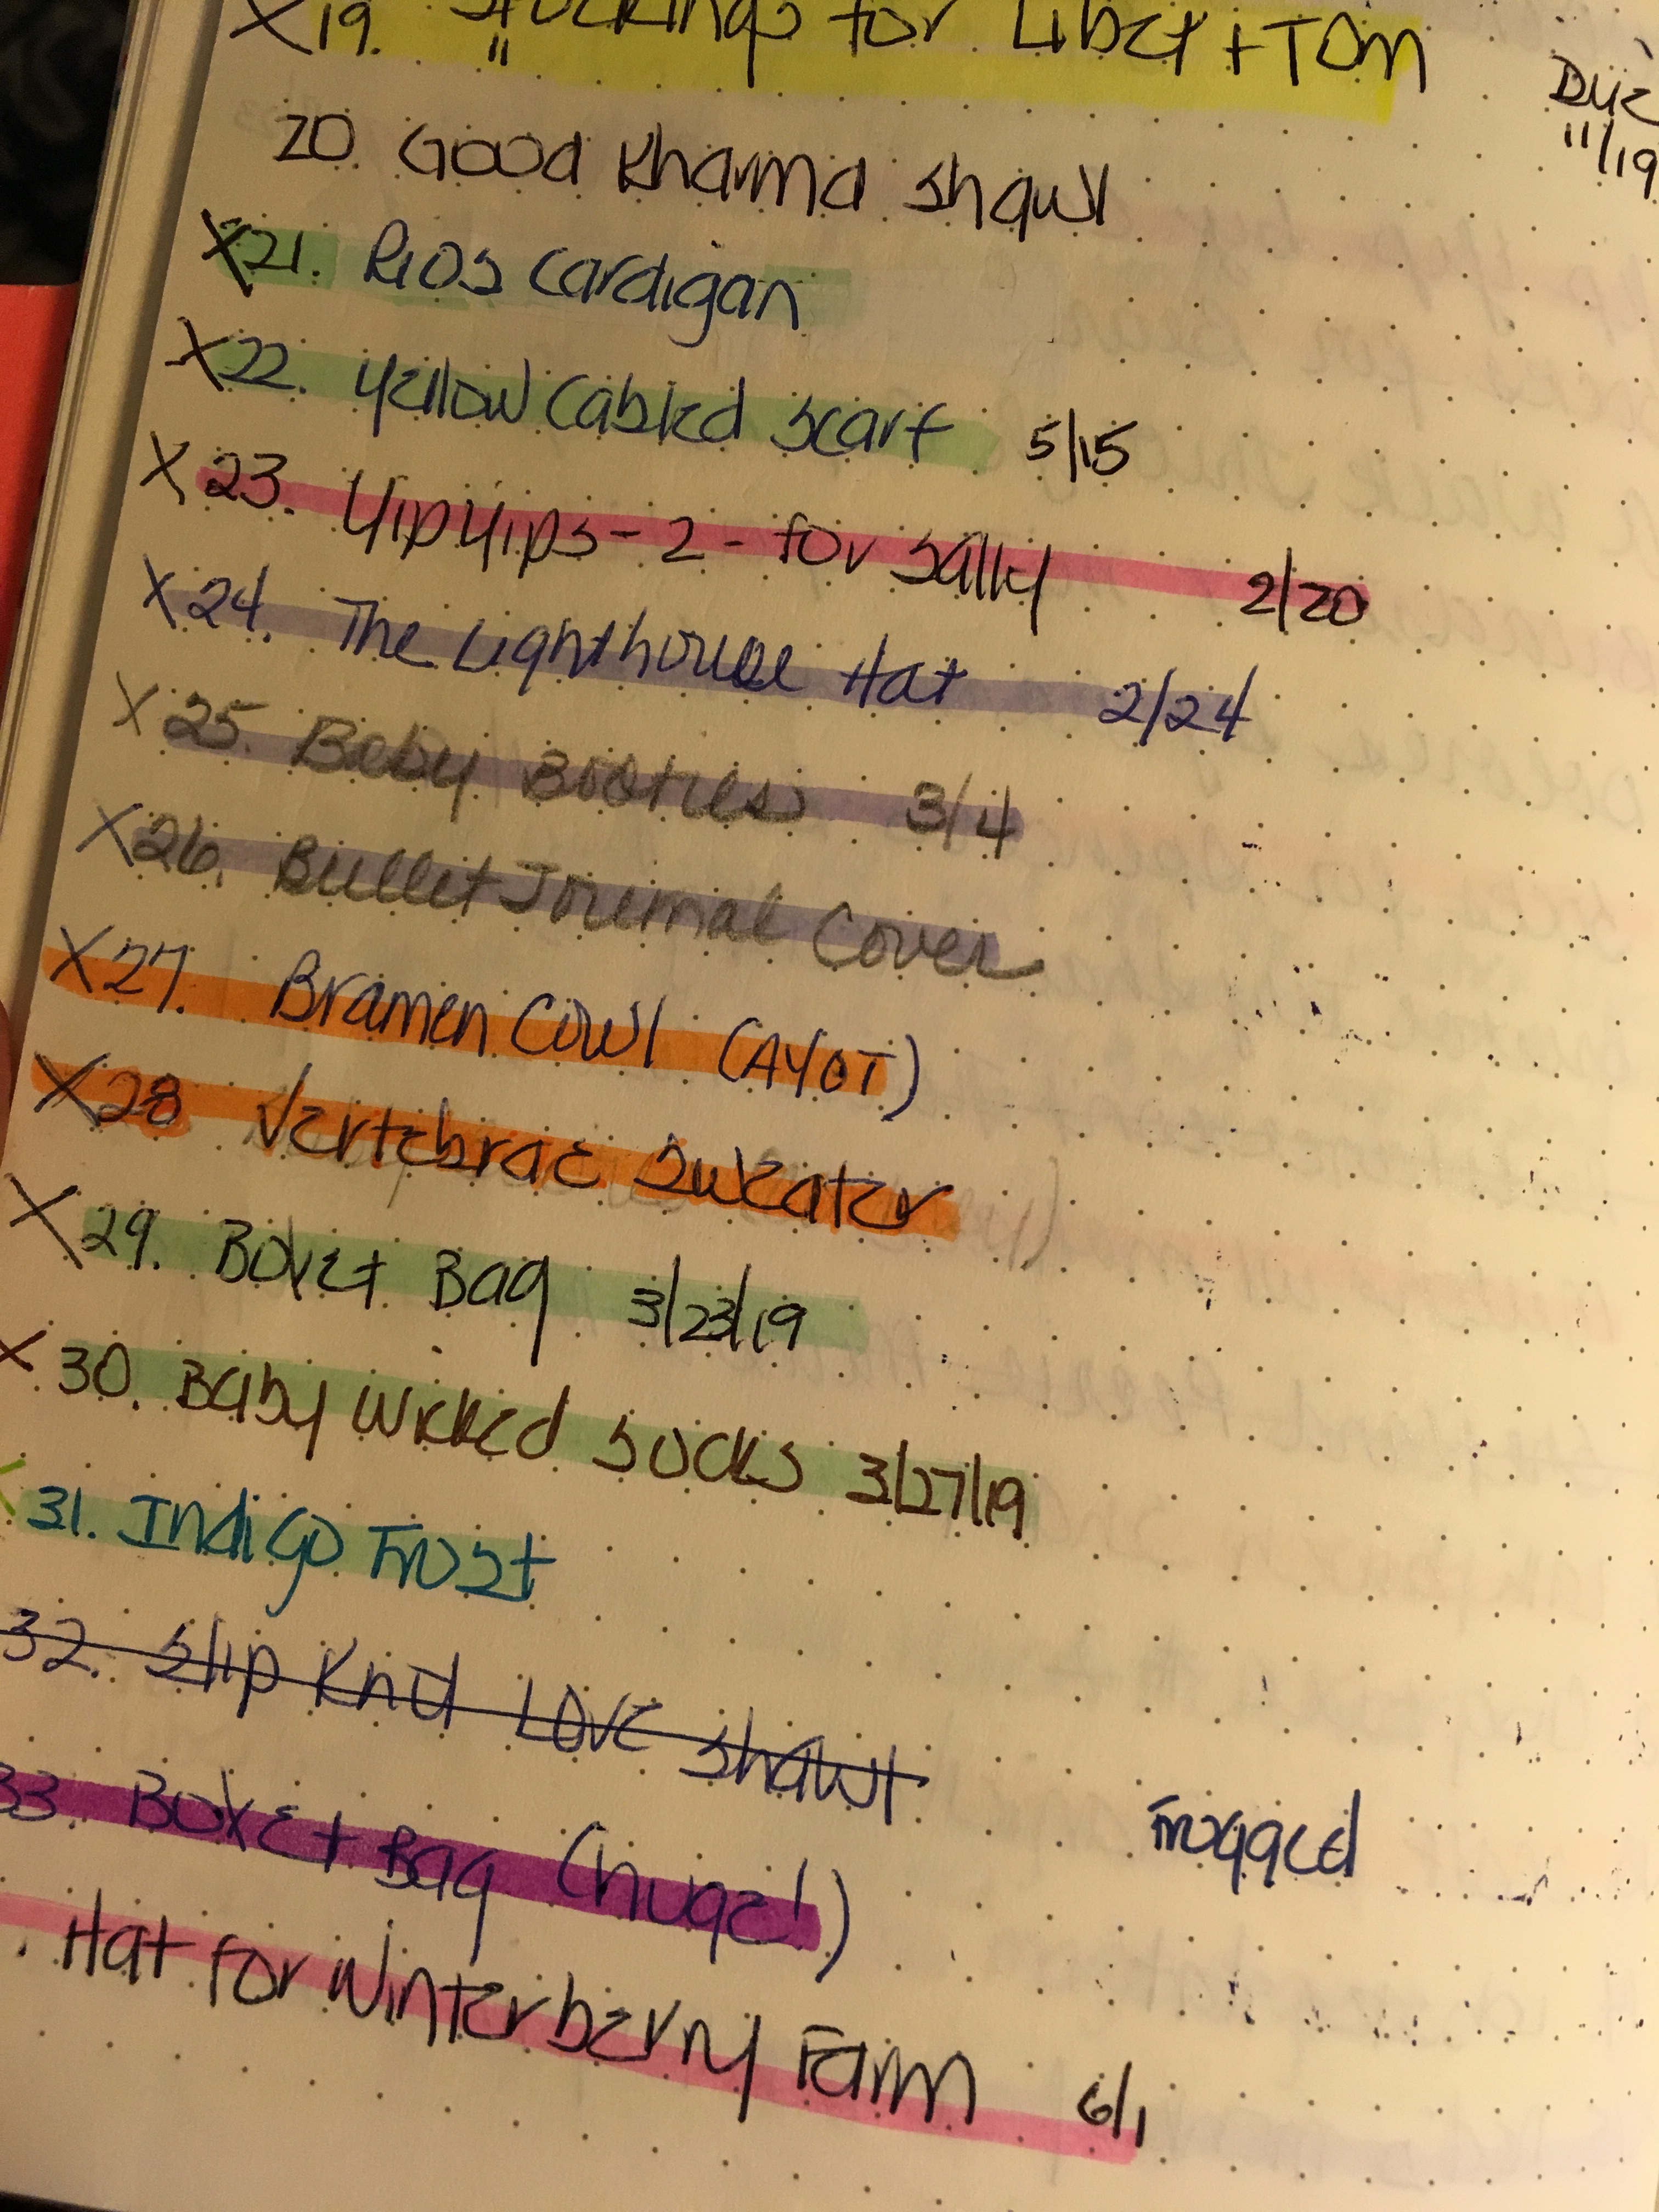 X19. Stockings for Libet + Tom
Due
11/19
20. Good Kharma Shawl
X21. Rios Cardigan
X22. Yellow Cabled Scarf 5/15
X 23. Yip Yips - 2 - for Sally 2/20
X 24. The Lighthouse Hat 2/24
X 25. Baby Booties 3/4
X26. Bullet Journal Cover
X27. Bramen Cowl (AYOT)
X28 Vertebrae Sweater
X 29. Boxet Bag 3/23/19
X 30. Baby Wicked Socks 3/27/19
31. Indigo Frost
32. Slip Knot Love Shawl
Frogged
33. Boxet Bag (huge!)
. Hat for Winterberry Farm 6/1